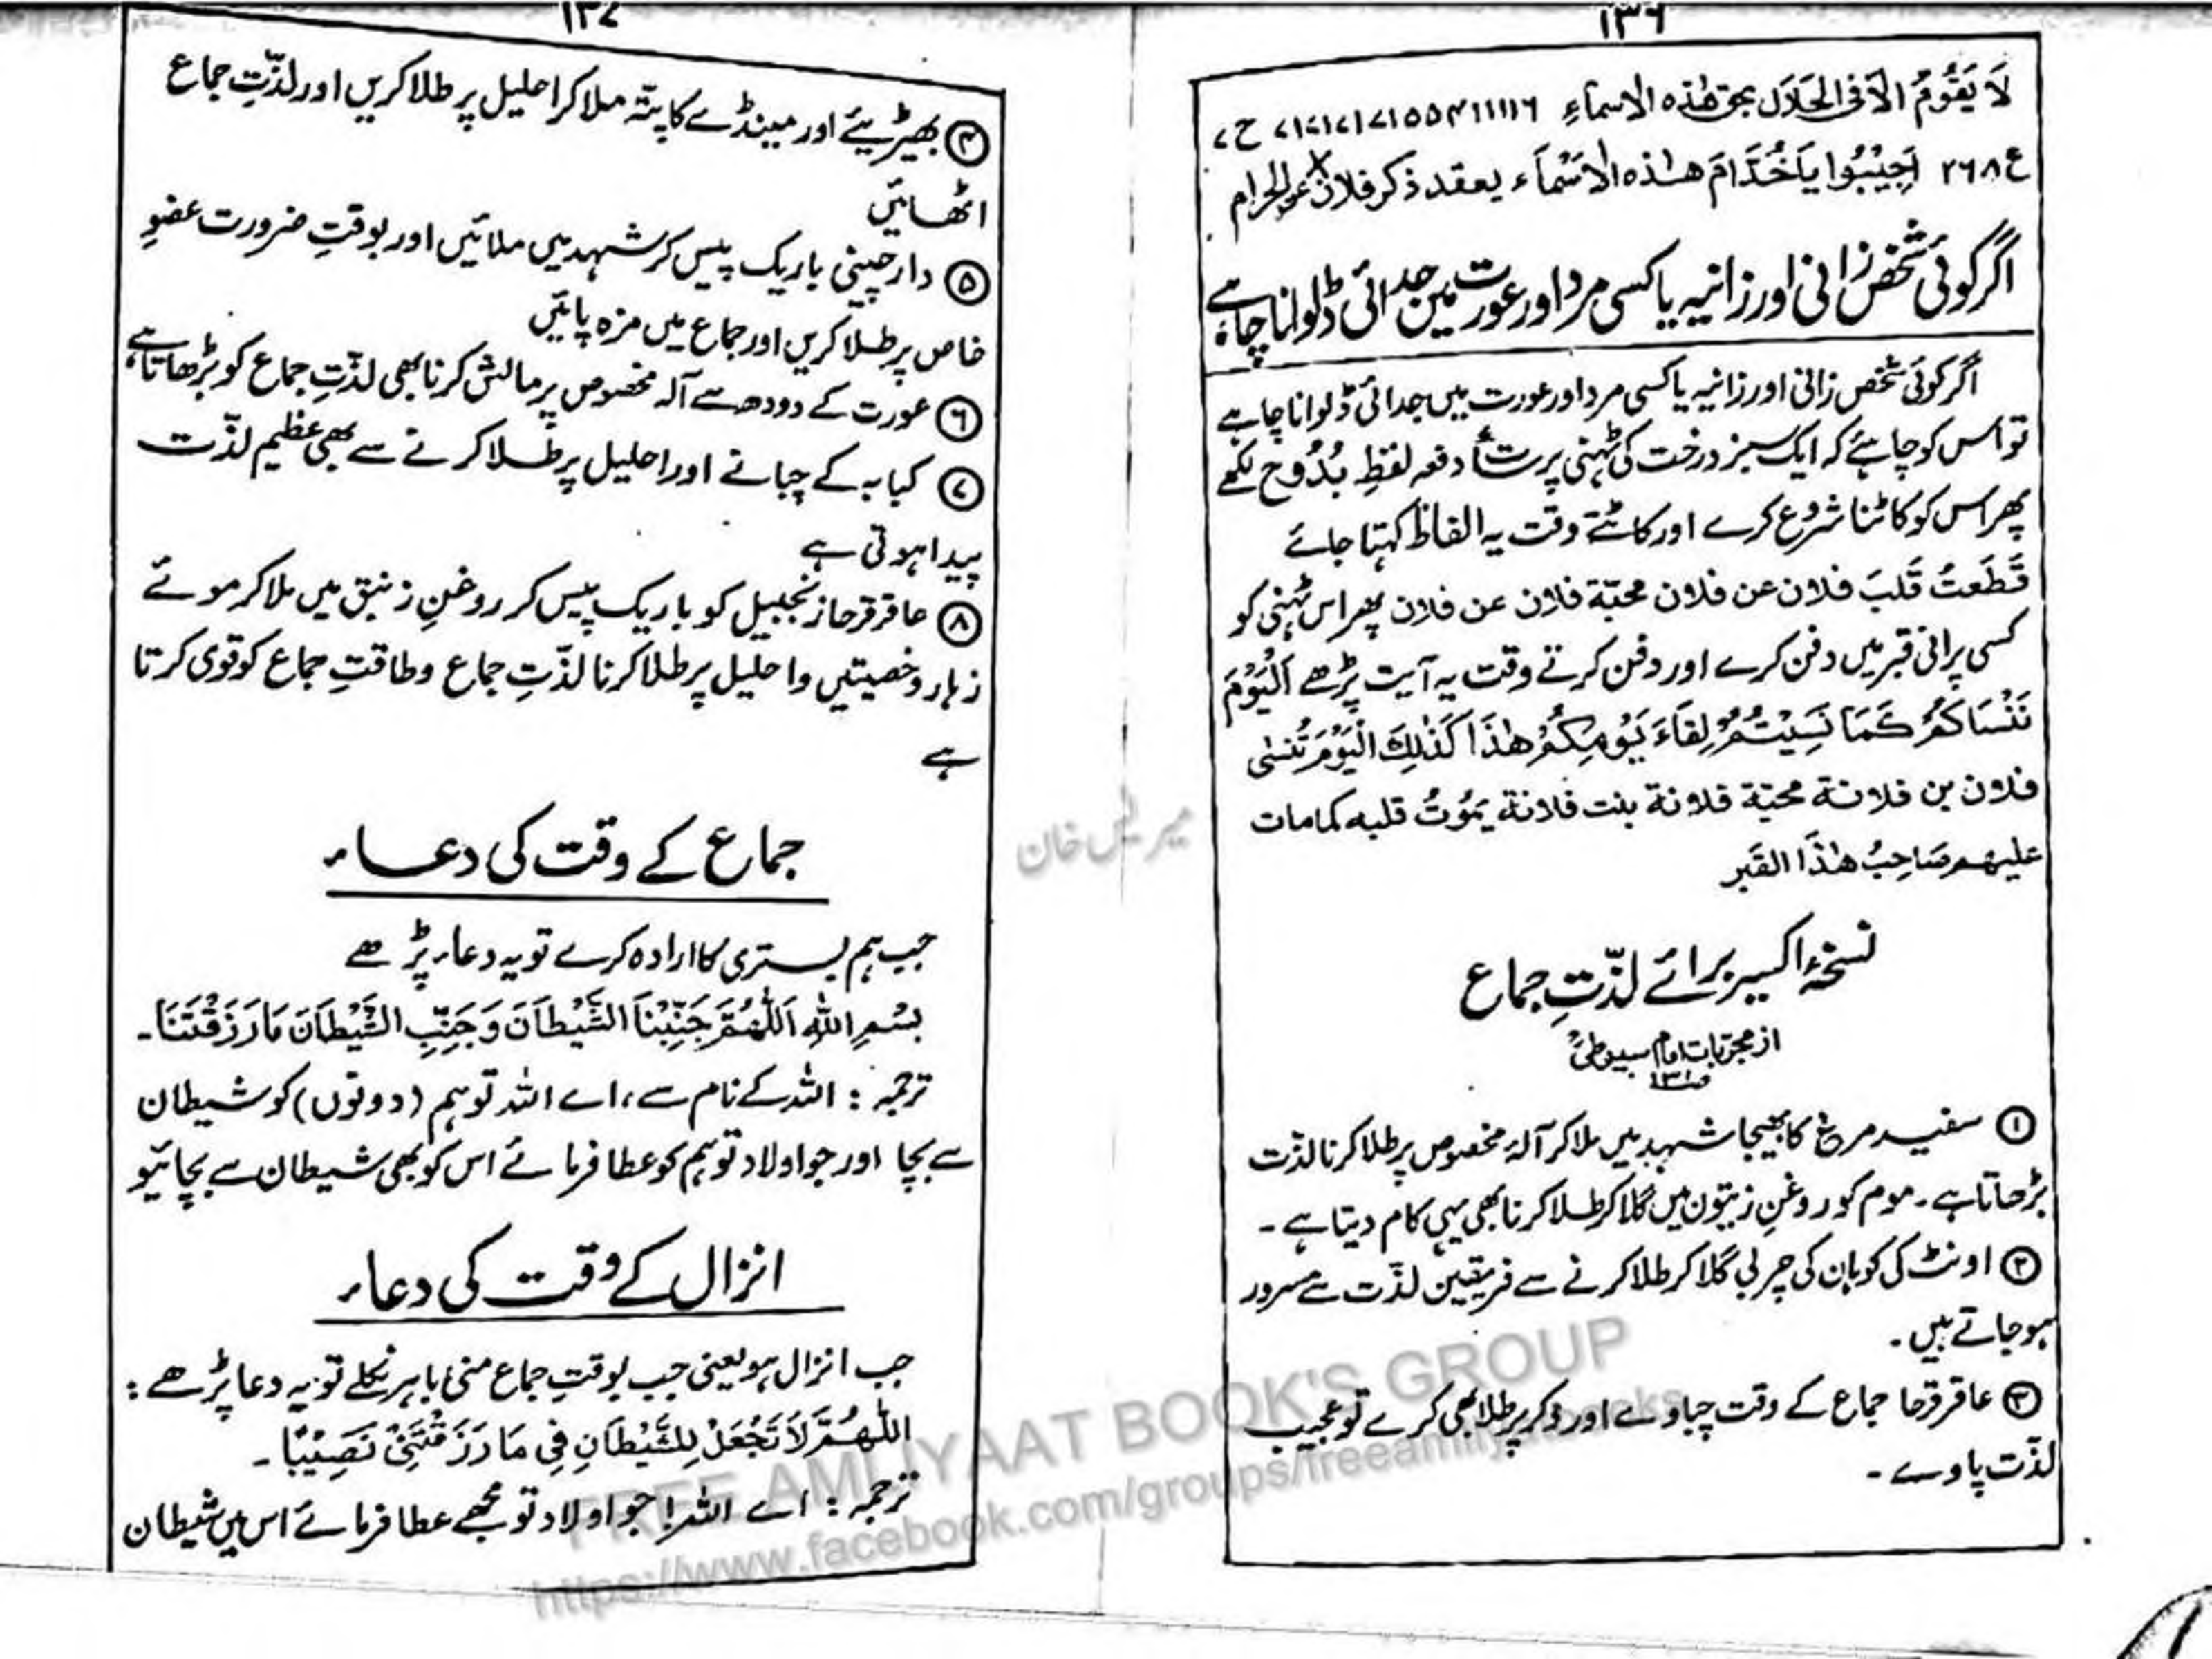 ۱۳۶
لَا يَقُوْمُ اِلَّا فِی الحَلَالِ بحق هٰذه الاسماءِ ۱۱۱۱۶
ع ۲۶۸ اَجِيْبُوا يَاخُدَّامَ هٰذه الاَسْمَآء بعقد ذكر فلان عن الحرام
اگر کوئی شخص زانی اور زانیہ یا کسی مرد اور عورت میں جدائی ڈلوانا چاہے
اگر کوئی شخص زانی اور زانیہ یا کسی مرد اور عورت میں جدائی ڈلوانا چاہے
تو اس کو چاہئے کہ ایک سبز درخت کی ٹہنی پر سات دفعہ لفظِ بُدُوح لکھے
پھر اس کو کاٹنا شروع کرے اور کاٹتے وقت یہ الفاظ کہتا جائے
قَطَعتُ قَلبَ فلان عن فلان محبّة فلان عن فلان پھر اس ٹہنی کو
کسی پرانی قبر میں دفن کرے اور دفن کرتے وقت یہ آیت پڑھے اَلْيَوْمَ
نَنْسَاكُمْ كَمَا نَسِيْتُمْ لِقَآءَ يَوْمِكُمْ هٰذَا كَذٰلِكَ الْيَوْمَ تُنْسٰى
فلان بن فلانة محبّة فلانة بنت فلانة يَمُوْتُ قلبه كمامات
عليهم صَاحِبُ هٰذَا القَبر
نسخۂ اکسیر برائے لذّتِ جماع
از مجربات امام سیوطیؒ
① سفید مرغ کا بھیجا شہد میں ملا کر آلۂ مخصوص پر طلا کرنا لذّت
بڑھاتا ہے۔ موم کو روغنِ زیتون میں گلا کر طلا کرنا بھی یہی کام دیتا ہے۔
② اونٹ کی کوہان کی چربی گلا کر طلا کرنے سے فریقین لذّت سے مسرور
ہو جاتے ہیں۔
③ عاقر قرحا جماع کے وقت چباوے اور ذکر پر طلا بھی کرے تو عجیب
لذّت پاوے۔
۱۳۷
④ بھیڑیئے اور مینڈے کا پتّہ ملا کر احلیل پر طلا کریں اور لذّتِ جماع
اٹھائیں
⑤ دارچینی باریک پیس کر شہد میں ملائیں اور بوقتِ ضرورت عضوِ
خاص پر طلا کریں اور جماع میں مزہ پائیں
⑥ عورت کے دودھ سے آلہ مخصوص پر مالش کرنا بھی لذّتِ جماع کو بڑھاتا ہے
⑦ کبابہ کے چبانے اور احلیل پر طلا کرنے سے بھی عظیم لذّت
پیدا ہوتی ہے
⑧ عاقر قرحا زنجبیل کو باریک پیس کر روغنِ زنبق میں ملا کر موئے
زہار و خصیتیں و احلیل پر طلا کرنا لذّتِ جماع و طاقتِ جماع کو قوی کرتا
ہے
جماع کے وقت کی دعاء
جب ہم بستری کا ارادہ کرے تو یہ دعاء پڑھے
بِسْمِ اللهِ اَللّٰهُمَّ جَنِّبْنَا الشَّيْطَانَ وَجَنِّبِ الشَّيْطَانَ مَا رَزَقْتَنَا۔
ترجمہ: اللہ کے نام سے، اے اللہ تو ہم (دونوں) کو شیطان
سے بچا اور جو اولاد تو ہم کو عطا فرمائے اس کو بھی شیطان سے بچائیو
انزال کے وقت کی دعاء
جب انزال ہو یعنی جب بوقتِ جماع منی باہر نکلے تو یہ دعا پڑھے:
اَللّٰهُمَّ لَا تَجْعَلْ لِلشَّيْطَانِ فِى مَا رَزَقْتَنِىْ نَصِيْبًا۔
ترجمہ: اے اللہ! جو اولاد تو مجھے عطا فرمائے اس میں شیطان
خان
FREE AMLIYAAT BOOK'S GROUP
https://www.facebook.com/groups/freeamliyatbooks